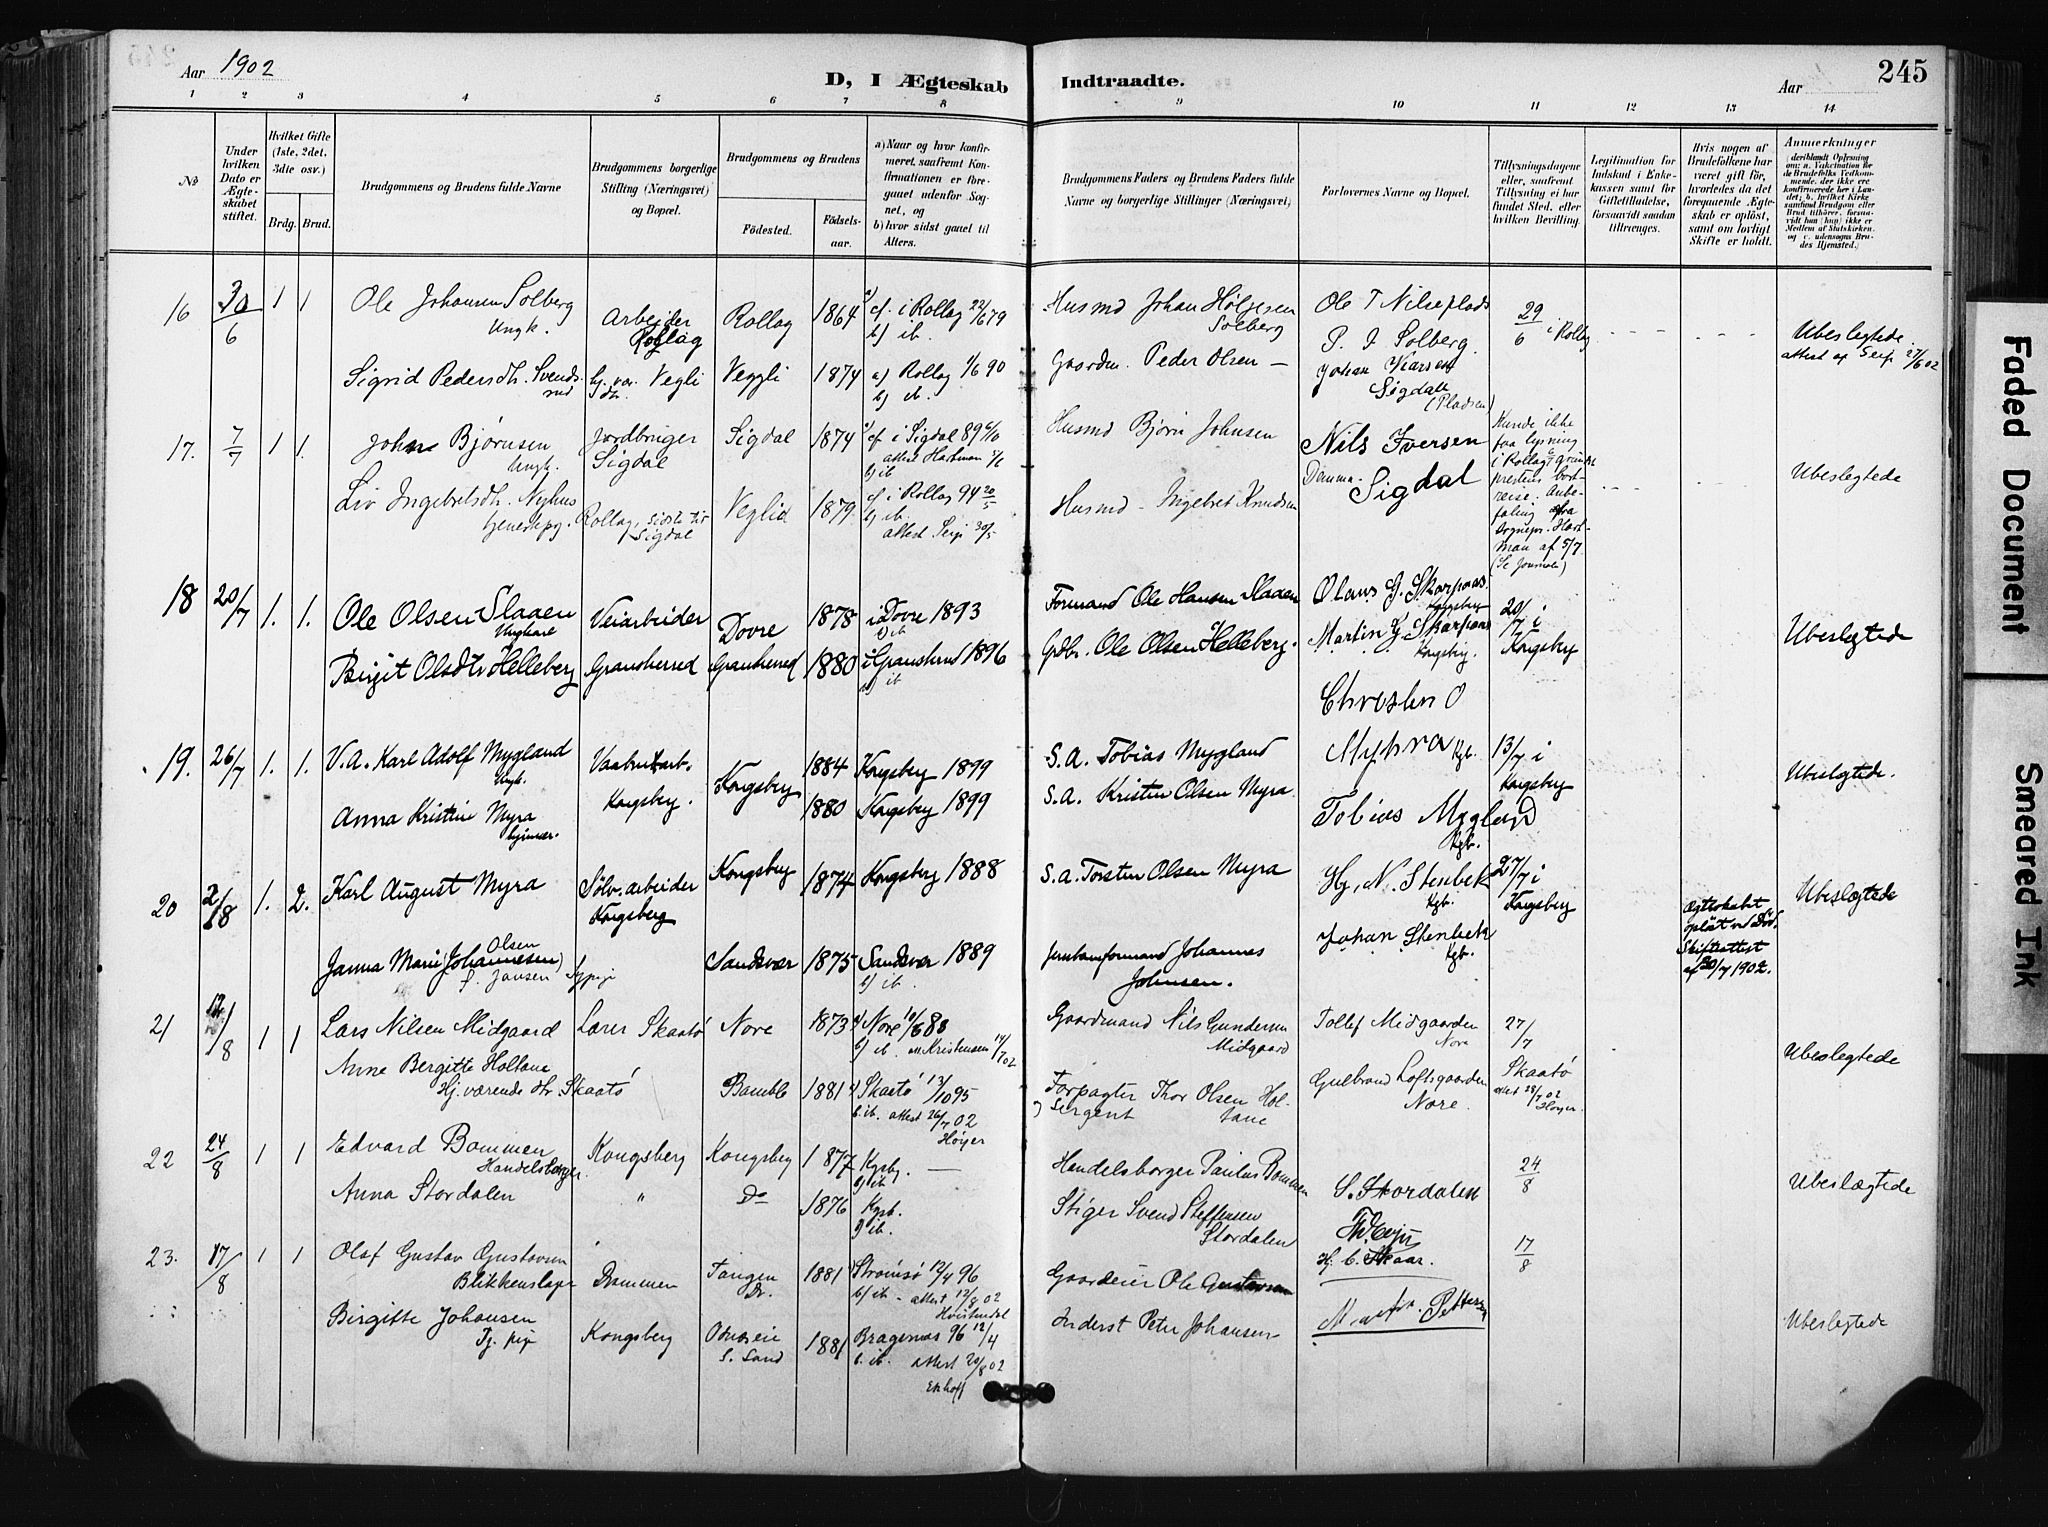 Aar 1902
D, I Ægteskab Indtraadte.
Aar
245
1 2 3 4 5 6 7 8 9 10 11 12 13 14
№
Under hvilken Dato er Ægteskabet stiftet.
Hvilket Gifte (1ste, 2det, 3die osv.)
Brdg. Brud.
Brudgommens og Brudens fulde Navne
Brudgommens borgerlige Stilling (Næringsvei) og Bopæl.
Brudgommens og Brudens
Födested.
Födselsaar.
a) Naar og hvor konfirmeret, saafremt Konfirmationen er foregaaet udenfor Sognet, og
b) hvor sidst gaaet til Alters.
Brudgommens Faders og Brudens Faders fulde Navne og borgerlige Stillinger (Næringsvei)
Forlovernes Navne og Bopæl.
Tillysningsdagene eller, saafremt Tillysning ei har fundet Sted, efter hvilken Bevilling.
Legitimation for Indskud i Enkekassen samt for Giftetilladelse, forsaavidt saadan tiltrænges.
Hvis nogen af Brudefolkene har været gift før, hvorledes da det foregaaende Ægteskab er opløst, samt om lovligt Skifte er holdt.
Anmerkninger
16 30/6 1 1 Ole Johansen Solberg Ungk. Arbeider Rollag Rollag 1864 a) cf. i Rollag 22/6 79 b) ib. Husmd Johan Holgesen Solberg Ole T Nilseplads P. J Solberg. 29/6 i Rollag Ubeslegtede.
Sigrid Pedersdt. Svendsrud hj. vær. dt. Vegli Veggli 1874 a) Rollag 1/6 90 b) ib. Gaardm. Peder Olsen Johan Sigdal (Pladsen) attest af 27/6 02
17. 7/7 1 1. John Bjørnsen Ungk. Jordbruger Sigdal Sigdal 1874 cf i Sigdal 89 attest Hartman b) ib Husmd Bjørn Johnsen Nils Iversen Sigdal Kunde ikke faa lysning i Rollag prestens bortreise. Anbefaling fra Sognepr. Hartman af 5/7 (Se Journalen) Ubeslegtede
Liv Ingebretsdt. Nyhus Rollag, sidste tir Sigdal Veglid 1879 cf i Rollag 94 20/5 b) ib. attest 30/5 Husmd Ingebret Knudsen
18 20/7 1. 1. Ole Olsen Slaaen Ungkarl Veiarbeider Dovre 1878 i Dovre 1893 b) ib Formand Ole Hansen Slaaen Olaus G. Skarpaas. Kongsberg 20/7 i Kongsbg Ubeslegtede
Birgit Olsdtr Helleberg Gransherred Gransherred 1880 i Gransherred 1896 b) ib Gdbr. Ole Olsen Helleberg. Martin G Skarpaas Kongsbg.
19. 26/7 1. 1. V.A. Karl Adolf Mygland Ungk. Kongsberg. Kongsberg 1884 Kongsberg 1899 S.A. Tobias Mygland Christen O Myhra Kgb. 13/7 i Kongsberg Ubeslegtede.
Anna Kristine Myra hjemmev. 1880 Kongsberg 1899 S.A. Kristen Olsen Myra Tobias Mygland Kgb.
20 2/8 1. 2. Karl August Myra Sølv.arbeider Kongsberg Kongsberg 1874 Kongsberg 1888 S.A. Torsten Olsen Myra Hj. N. Stenbek Kgb. 27/7 i Kongsberg Ægteskabet opløst ved Död. Skifteattest af 30/7 1902. Ubeslægtede
Janna Marie (Johannesen) Olsen f. Jansen Sypige Sandsvær 1875 Sandsvær 1889 b) ib. Jernbaneformand Johannes Johnsen. Johan Stenbek Kgb.
21 12/8 1 1 Lars Nilsen Midgaard Lærer Skaatø Nore 1873 a) Nore 10/6 88 b) ib. att Kristensen 14/7 02 Gaardmand Nils Gundersen Midgaard Tollef Midgaarden Nore 27/7 Skaatø attest 28/7 02 Høyer. Ubeslegtede
Anne Bergitte Holtane Hj.værende dtr. Skaatø Bamble 1881 a) Skaatø 13/10 95 b. ib. attest 26/7 02 Høyer Forpagter Thor Olsen Holtane og Sergent Gulbrand Loftsgaarden Nore.
22 24/8 1 1 Edvard Bommen Handelsborger Kongsberg Kongsberg 1877 Kgsbg. b) ib Handelsborger Paulus Bommen S. Stordalen 24/8 Ubeslægtede
Anna Stordalen " Do 1876 Kgsb. b) ib. Stiger Svend Steffensen Stordalen
23. 17/8 1 1 Olaf Gustav Gustavsen Blikkenslager Drammen Tangen Dr. 1881 Strømsø 12/4 96 b) ib. attest 12/8 02 Gaardeier Ole Gustavsen H. C. Skaar. 17/8 Ubeslegtede
Birgitte Johansen Tj. pige Kongsberg 1881 Bragernæs 96 12/4 b. ib. attest 20/8 02 Ekhoff Peter Johansen
Faded Document
Smeared Ink